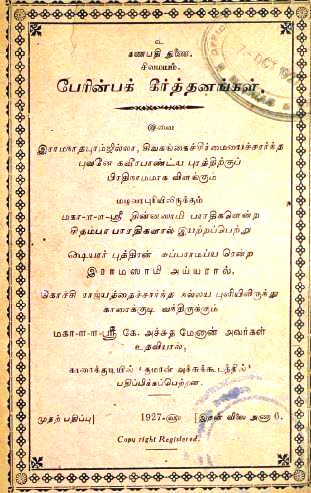 உ
கணபதி துணை.
சிவமயம்.
பேரின்பக் கீர்த்தனங்கள்.
இவை
இராமநாதபுரம்ஜில்லா, சிவகங்கைச்சீர்மையைச்சார்ந்த
புவனே கவீரபாண்டிய புரத்திற்குப்
பிரதிநாமமாக விளங்கும்
மகா-ா-ா-ஸ்ரீ சின்னசாமி பாரதிகளென்ற
சிதம்பர பாரதிகளால் இயற்றப்பெற்று
புத்திரன் சுப்பராமய்ய ரென்ற
இராமஸாமி அய்யரால்,
கொச்சி ராஜ்யத்தைச்சார்ந்த
காரைக்குடி வந்திருக்கும்
மகா-ா-ா-ஸ்ரீ கே. அச்சுத மேனோன் அவர்கள்
உதவியால்,
காரைக்குடியில் 'குமரன் அச்சுக்கூடத்தில்'
பதிப்பிக்கப்பெற்றன.
முதற் பதிப்பு] 1927-ளு [இதன் விலை அணா 6.
Copy right Registered.